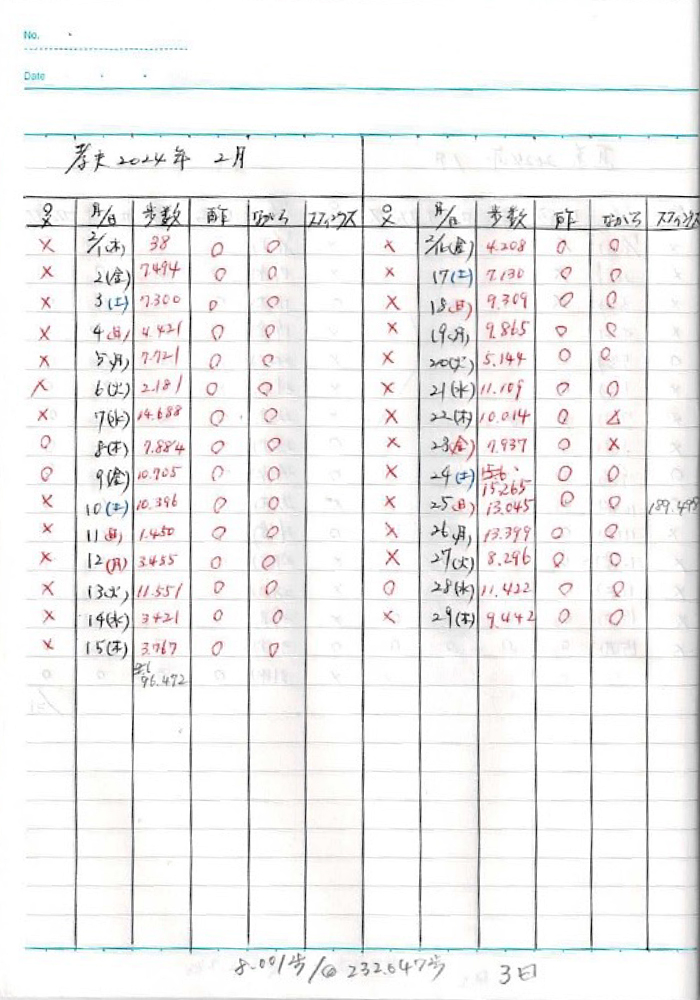 No.
Date
孝夫 2024年 2月
月/日 歩数 酢 ながら 月/日 歩数 酢 ながら
× 2/1(木) 38 ○ ○ × 2/16(金) 4.208 ○ ○
× 2(金) 7.494 ○ ○ × 17(土) 7.130 ○ ○
× 3(土) 7.300 ○ ○ × 18(日) 9.309 ○ ○
× 4(日) 4.421 ○ ○ × 19(月) 9.865 ○ ○
× 5(月) 7.721 ○ ○ × 20(火) 5.144 ○ ○
× 6(火) 2.181 ○ ○ × 21(水) 11.109 ○ ○
× 7(水) 14.688 ○ ○ × 22(木) 10.014 ○ △
○ 8(木) 7.884 ○ ○ × 23(金) 7.937 ○ ×
○ 9(金) 10.705 ○ ○ × 24(土) 15.265 ○ ○
× 10(土) 10.396 ○ ○ × 25(日) 13.045 ○ ○ 189.498
× 11(日) 1.450 ○ ○ × 26(月) 13.399 ○ ○
× 12(月) 3.455 ○ ○ × 27(火) 8.296 ○ ○
× 13(火) 11.551 ○ ○ ○ 28(水) 11.422 ○ ○
× 14(水) 3421 ○ ○ × 29(木) 9.442 ○ ○
× 15(木) 3.767 ○ ○
96.472
8.001歩/@ 232.047歩 3日